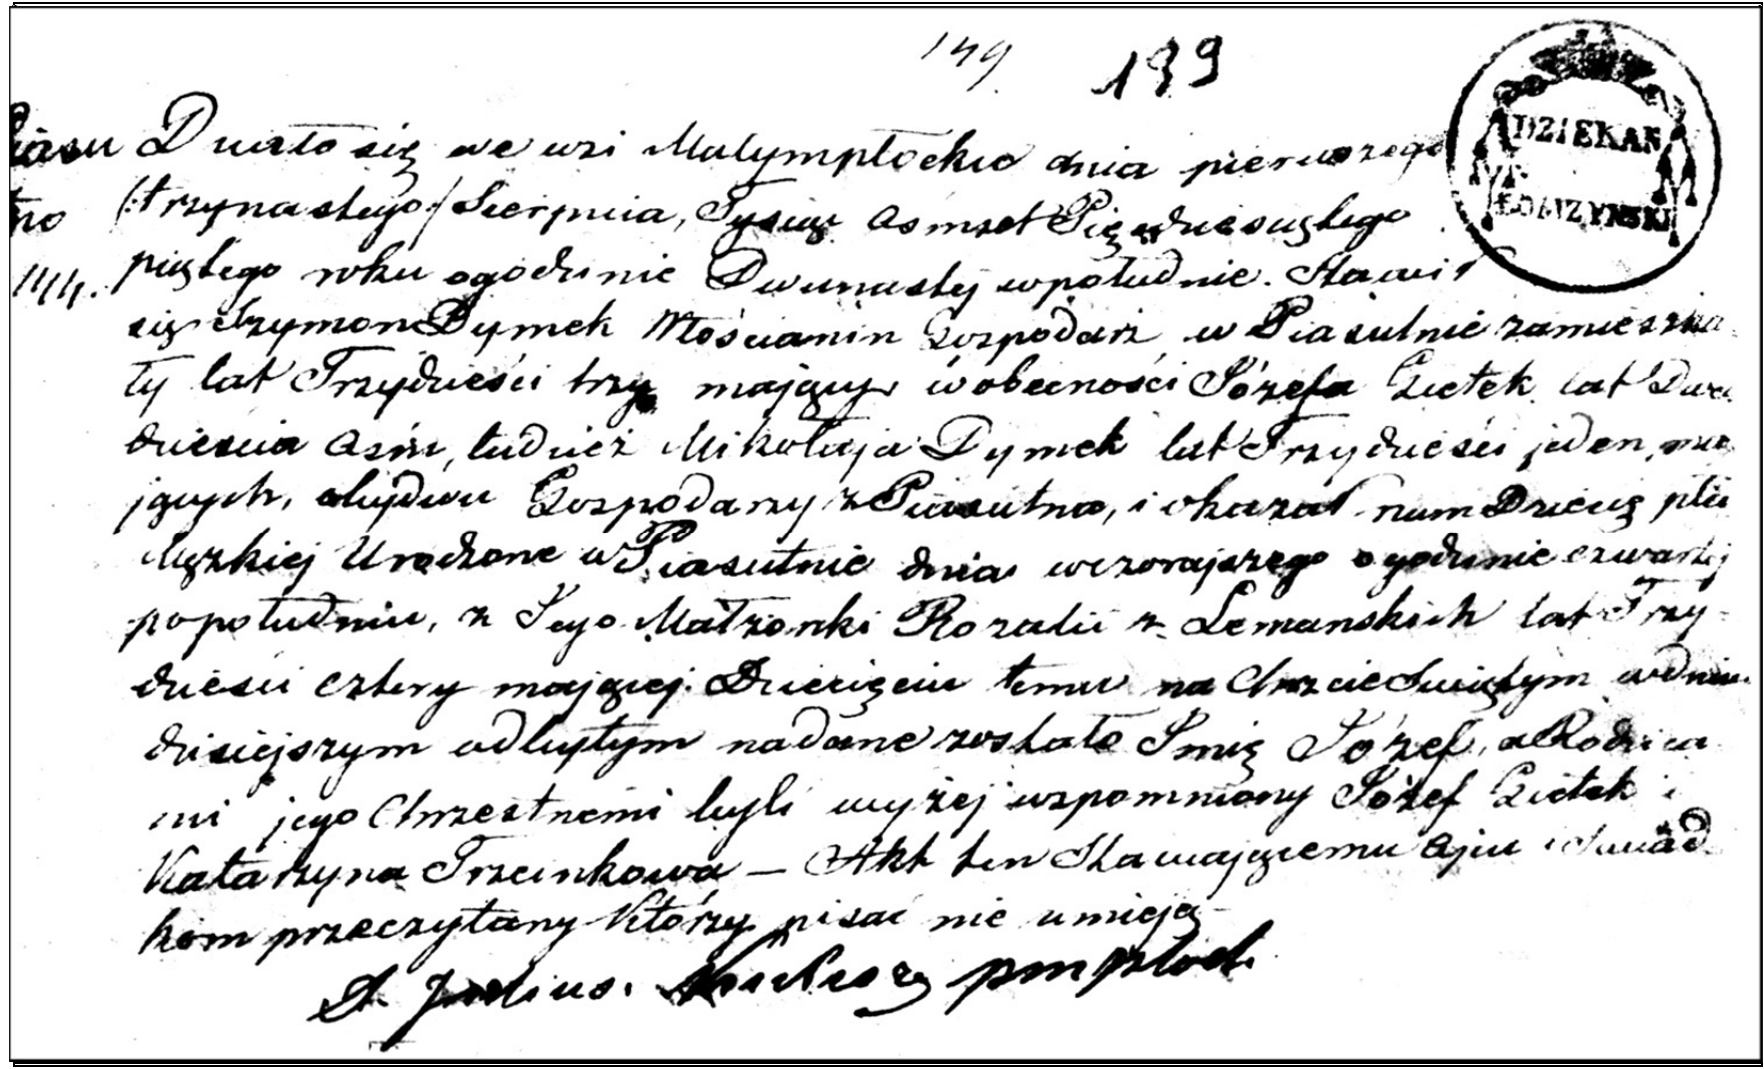 149. 139
DZIEKAN
ŁOMZYNSKI
Piasu Działo się we wsi Małympłocku dnia pierwszego
tno /:trzynastego:/ Sierpnia, Tysiąc Osmset Pięćdziesiątego
114. piątego roku o godzinie Dwunastej w południe. Stawił
się Szymon Dymek Włościanin Gospodarz w Piasutnie zamieszka
ły lat Trzydzieści trzy mający w obecności Józefa Ziętek lat Dwa
dzieścia Ośm, tudzież Mikołaja Dymek lat Trzydzieści jeden, ma
jących, obydwu Gospodarzy z Piasutna, i okazał nam Dziecię płci
Męzkiej Urodzone w Piasutnie dnia wczorajszego o godzinie czwartej
popołudniu, z Jego Małżonki Rozalii z Lemanskich lat Trzy
dzieści cztery mającej. Dziecięciu temu na Chrzcie Świętym w dniu
dzisiejszym odbytym nadane zostało Imię Józef, a Rodzica
mi jego Chrzestnemi byli wyżej wspomniony Józef Ziętek i
Katarzyna Trzcinkowa — Akt ten Stawającemu Ojcu i Świad
kom przeczytany Którzy pisać nie umieją
X. Julius.